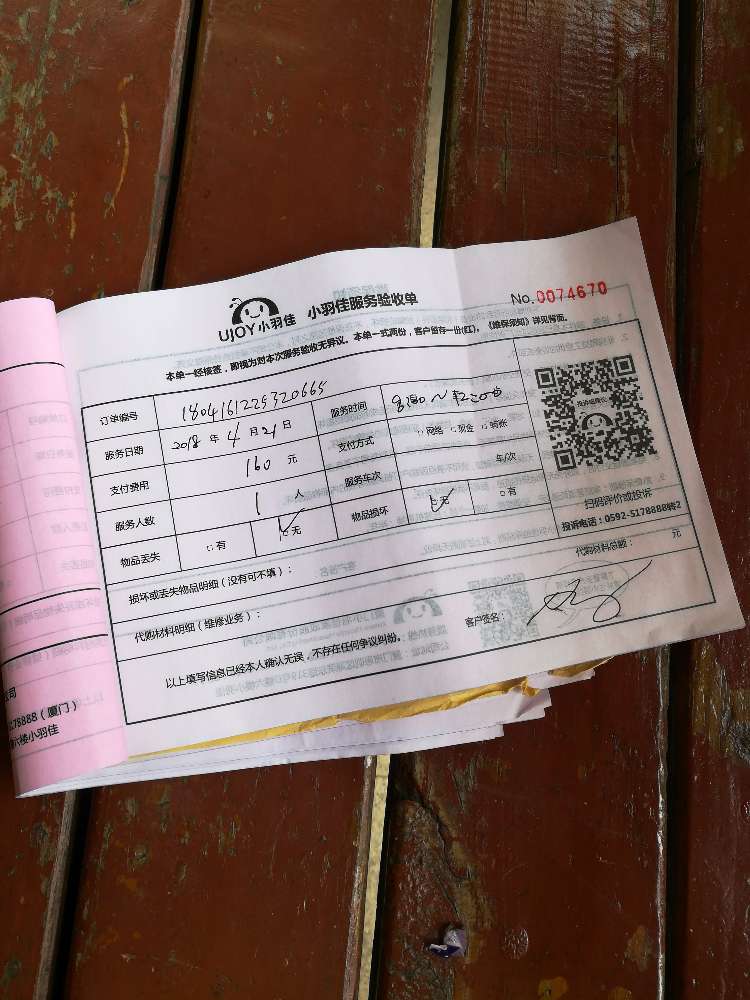 UJOY小羽佳 小羽佳服务验收单 No.0074670
本单一经接签，即视为对本次服务验收无异议。本单一式两份，客户留存一份(红)。《维保须知》详见背面。
订单编号 1804161225320665 服务时间 8:00~12:00
服务日期 2018 年 4 月 21 日 支付方式 □网络 □现金 □转账
支付费用 160 元 服务车次 车/次
服务人数 1 人 物品损坏 □无 □有
物品丢失 □有 □无
扫码评价或投诉
投诉电话：0592-5178888转2
损坏或丢失物品明细（没有可不填）： 代购材料总额： 元
代购材料明细（维修业务）：
以上填写信息已经本人确认无误，不存在任何争议纠纷。 客户签名：
公司
5178888（厦门）
六楼小羽佳